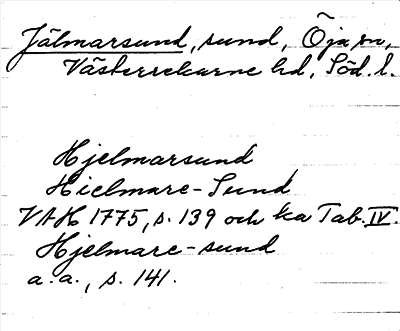 Jälmarsund, sund, Öja sn,
Västerrekarne hd, Söd. l.
Hjelmarsund
Hielmare-Sund
VAH 1775, s. 139 och ka Tab. IV.
Hjelmare-sund
a. a., s. 141.